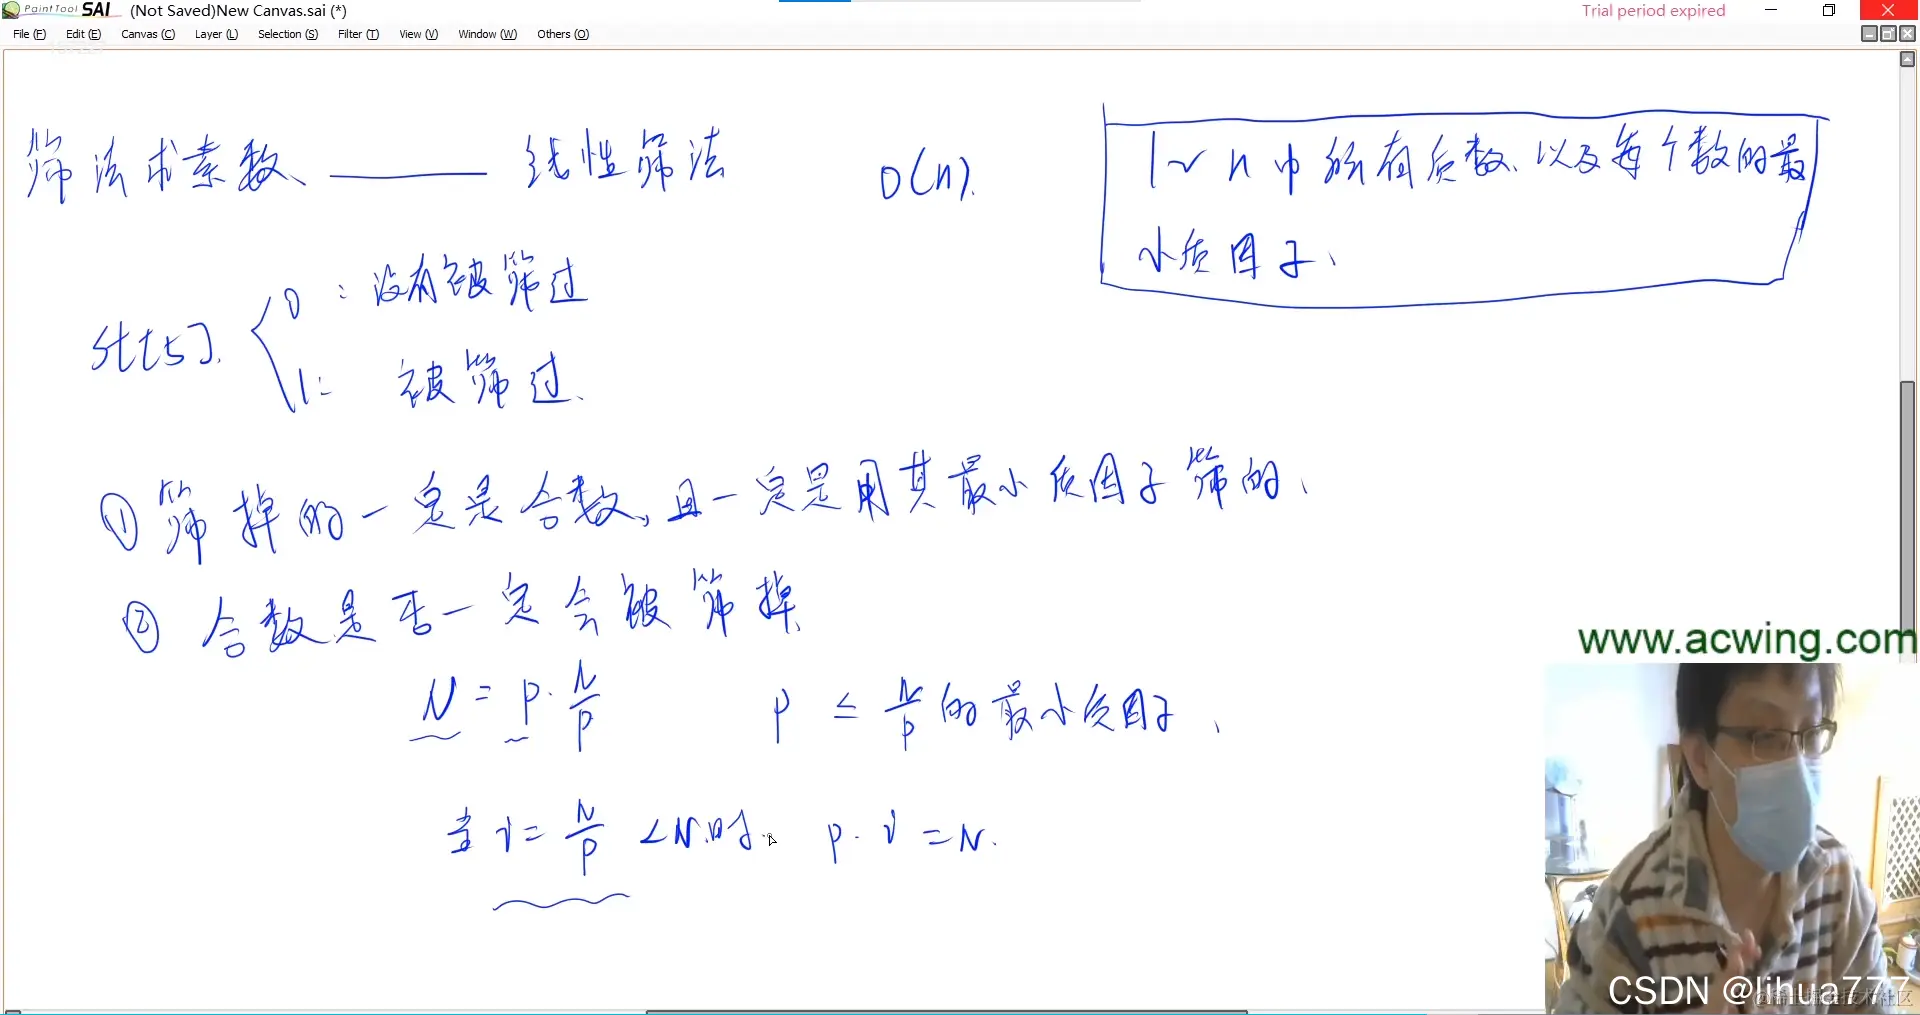 PaintTool SAI (Not Saved)New Canvas.sai (*)
Trial period expired
File (F) Edit (E) Canvas (C) Layer (L) Selection (S) Filter (T) View (V) Window (W) Others (O)
筛法求素数、—— 线性筛法 O(n).
1~n中所有质数、以及每个数的最
小质因子、
0：没有被筛过
st[5].
1： 被筛过.
① 筛掉的一定是合数,且一定是用其最小质因子筛的、
② 合数是否一定会被筛掉
N = p · N/p p ≤ N/p 的最小质因子、
当 i = N/p < N 时. p · i = N.
www.acwing.com
CSDN @lihua777